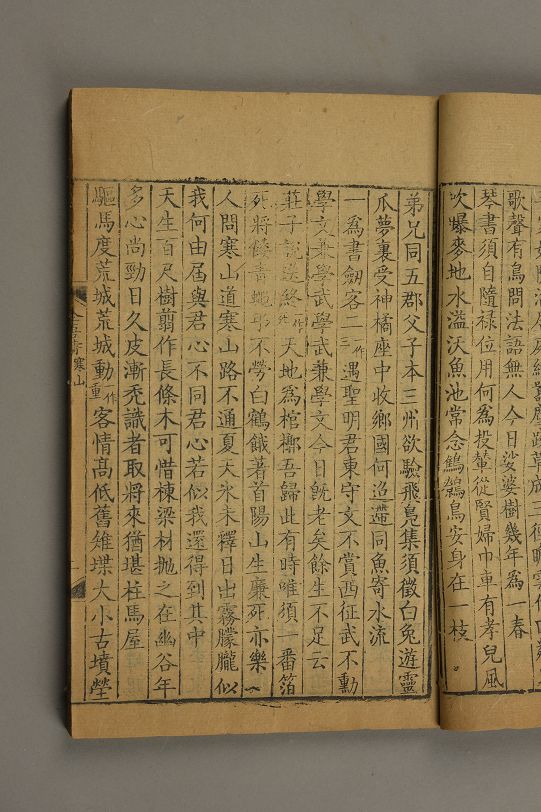 歌聲有鳥問法語無人今日娑婆樹幾年為一春
琴書須自隨祿位用何為投輦從賢婦巾車有孝兒風
吹曝麥地水溢沃魚池常念鷦鷯鳥安身在一枝
弟兄同五郡父子本三州欲驗飛鳧集須徵白兔遊靈
瓜夢裏受神橘座中收鄉國何迢遰同魚寄水流
一為書劍客二一作三遇聖明君東守文不賞西征武不勳
學文兼學武學武兼學文今日既老矣餘生不足云
莊子說送終一作天地為棺槨吾歸此有時唯須一番箔
死將餧青蠅弔不勞白鶴餓著首陽山生廉死亦樂
人問寒山道寒山路不通夏天氷未釋日出霧朦朧似
我何由屆與君心不同君心若似我還得到其中
天生百尺樹翦作長條木可惜棟梁材拋之在幽谷年
多心尚勁日久皮漸禿識者取將來猶堪柱馬屋
驅馬度荒城荒城動一作重客情高低舊雉堞大小古墳塋
寒山